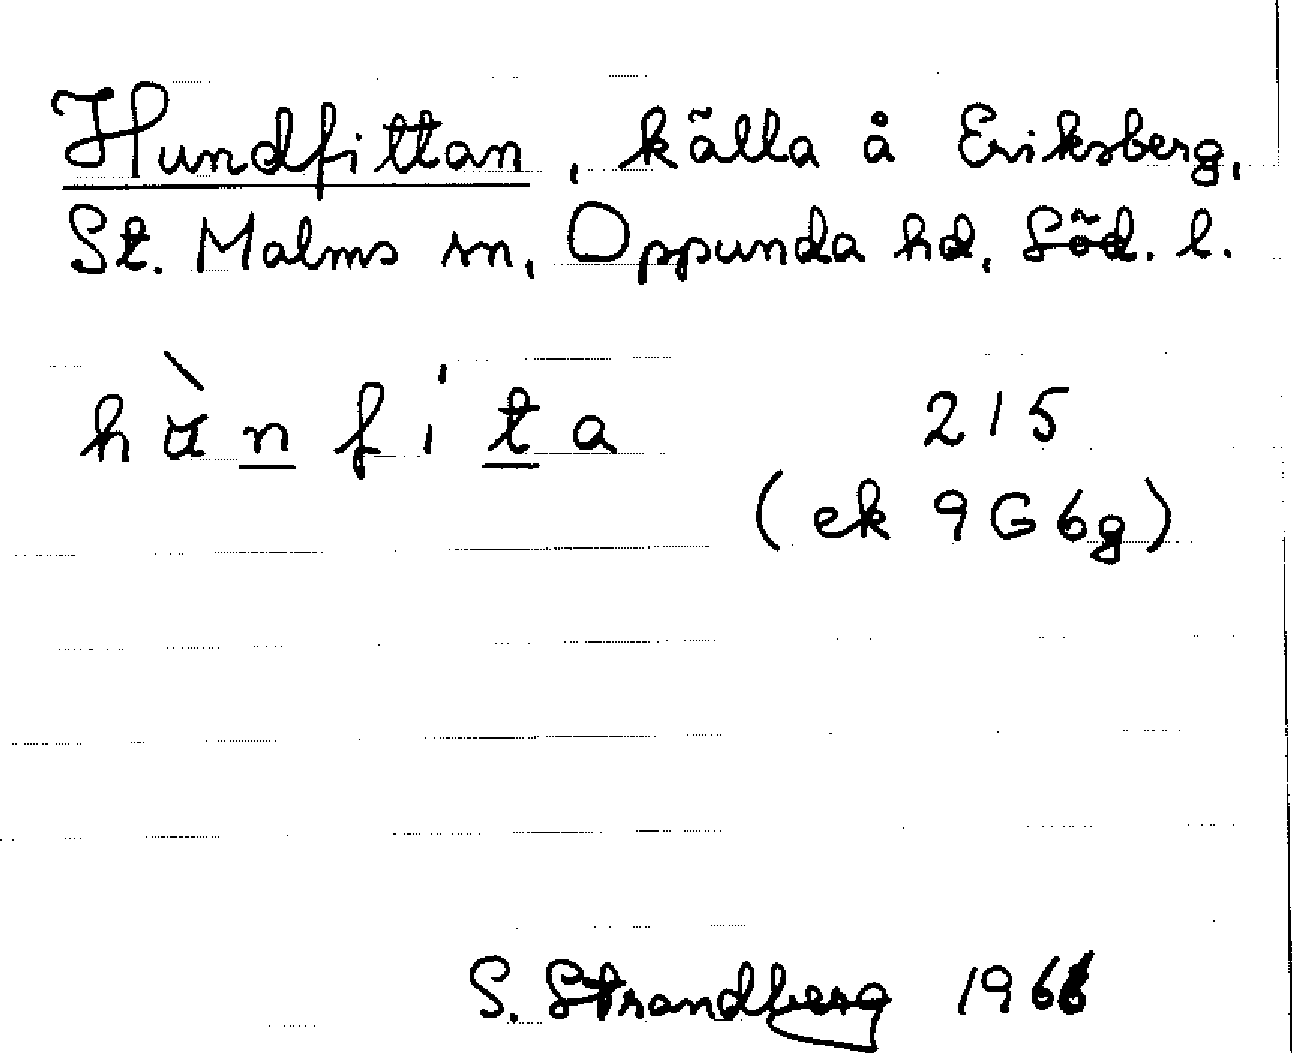 Hundfittan, källa å Eriksberg,
St. Malms sn, Oppunda hd, Söd. l.
hùnfita 215
(ek 9G6g)
S. Strandberg 1966